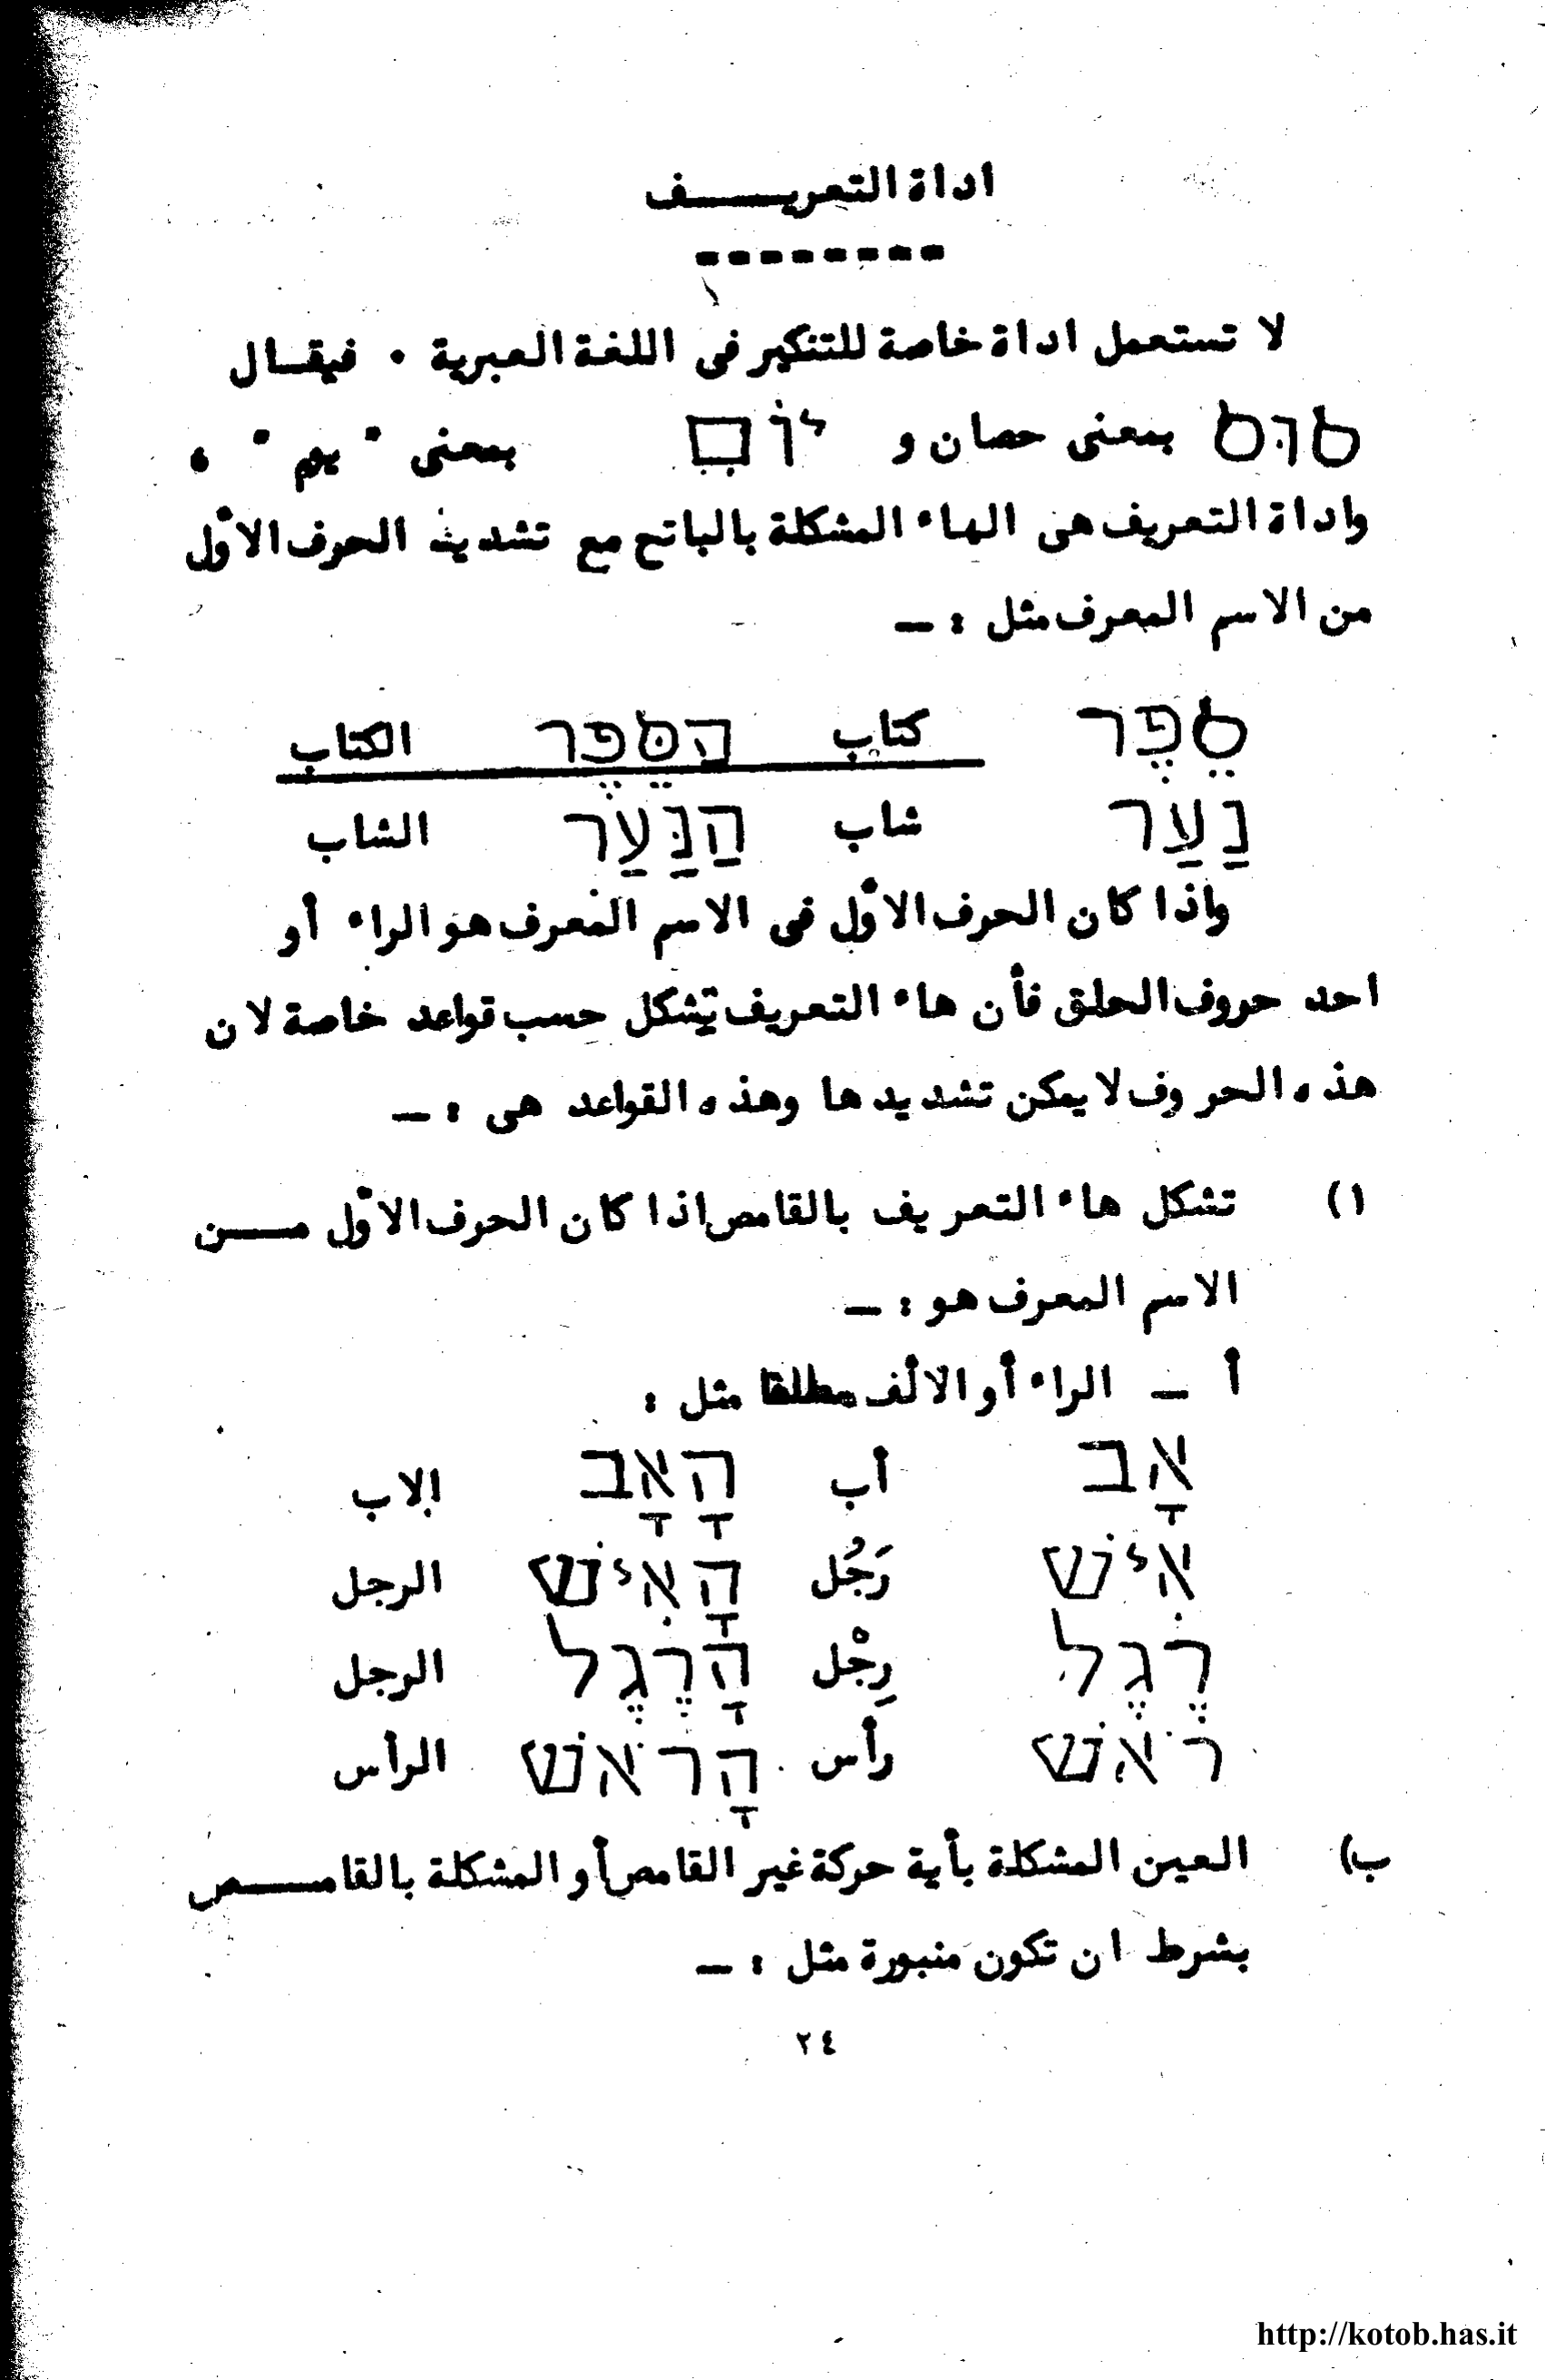 اداة التعريـــــف
--------
لا تستعمل اداة خاصة للتنكير فى اللغة العبرية ٠ فيقـال
סוּס بمعنى حصان و יוֹם بمعنى " يوم " ،
واداة التعريف هى الهاء المشكلة بالباتح مع تشديد الحرف الاول
من الاسم المعرف مثل : ــ
סֵפֶר كتاب הַסֵּפֶר الكتاب
נַעַר شاب הַנַּעַר الشاب
واذا كان الحرف الاول فى الاسم المعرف هو الراء أو
احد حروف الحلق فأن هاء التعريف تشكل حسب قواعد خاصة لان
هذه الحروف لا يمكن تشديدها وهذه القواعد هى : ــ
١) تشكل هاء التعريف بالقامص اذا كان الحرف الاول مــــن
الاسم المعرف هو : ــ
أ ــ الراء أو الالف مطلقا مثل :
אָב أب הָאָב الاب
אִישׁ رَجُل הָאִישׁ الرجل
רֶגֶל رِجْل הָרֶגֶל الرجل
רֹאשׁ رأس הָרֹאשׁ الرأس
ب) العين المشكلة بأية حركة غير القامص أو المشكلة بالقامــــص
بشرط ان تكون منبورة مثل : ــ
٢٤
http://kotob.has.it